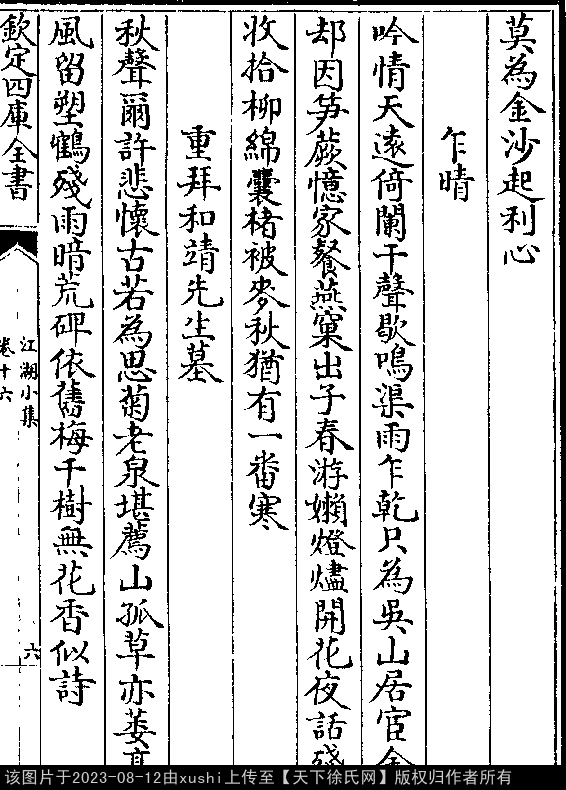 莫為金沙起利心
乍晴
吟情天遠倚闌干聲歇鳴渠雨乍乾只為吳山居宦
却因笋蕨憶家餐燕窠出子春游嬾燈燼開花夜話殘
收拾柳綿囊楮被麥秋猶有一番寒
重拜和靖先生墓
秋聲爾許悲懷古若為思菊老泉堪薦山孤草亦萎
風留塑鶴殘雨暗荒碑依舊梅千樹無花香似詩
欽定四庫全書
江湖小集
卷十六
六
该图片于2023-08-12由xushi上传至【天下徐氏网】版权归作者所有